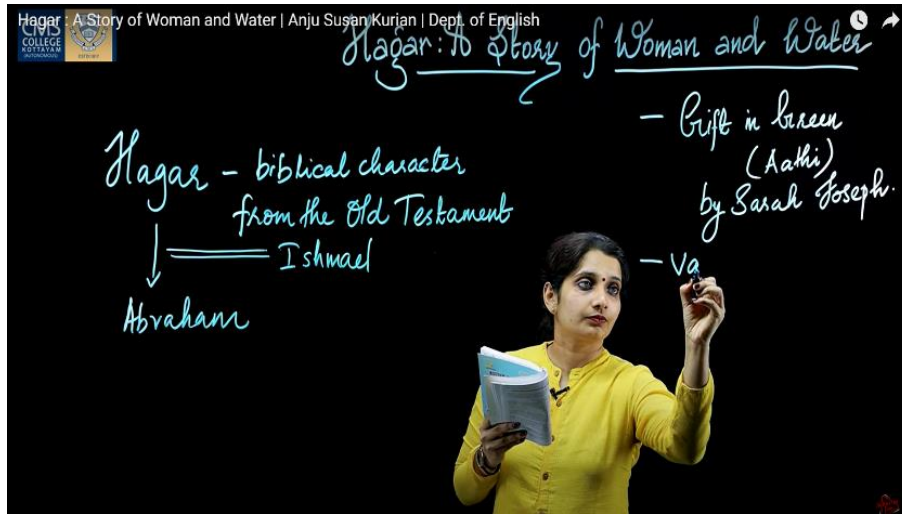 Hagar : A Story of Woman and Water | Anju Susan Kurian | Dept. of English
CMS
COLLEGE
KOTTAYAM
(AUTONOMOUS)
Hagar : A Story of Woman and Water
- Gift in Green
(Aathi)
by Sarah Joseph.
Hagar - biblical character
from the Old Testament
Ishmael
Abraham
- Va